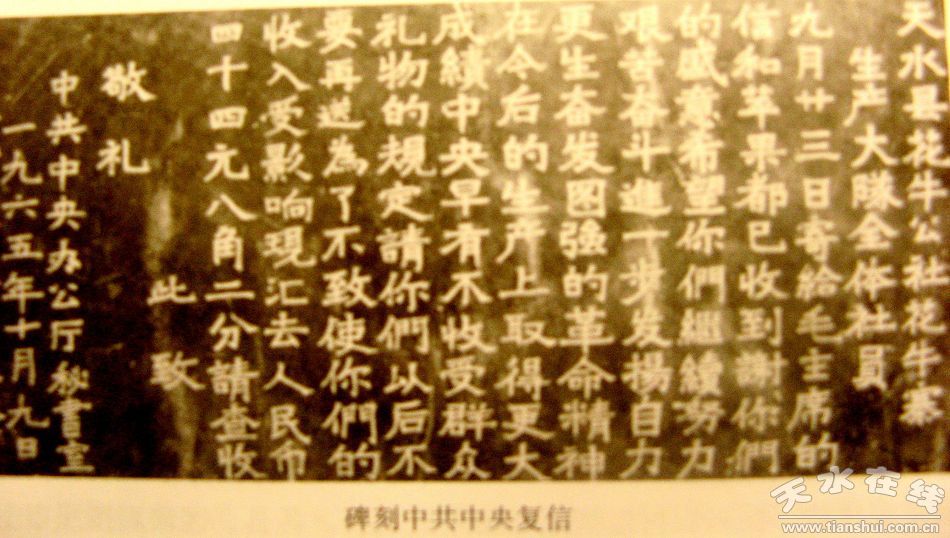 天水县花牛公社花牛寨
生产大队全体社員
九月廿三日寄給毛主席的
信和苹果都已收到謝你們
的盛意希望你們繼續努力
艰苦奋斗進一步发揚自力
更生奋发图強的革命精神
在今后的生产上取得更大
成績中央早有不收受群众
礼物的規定請你們以后不
要再送為了不致使你們的
收入受影响現汇去人民币
四十四元八角二分請查收
此致
敬礼
中共中央办公厅秘書室
一九六五年十月九日
碑刻中共中央复信
天水在线
www.tianshui.com.cn